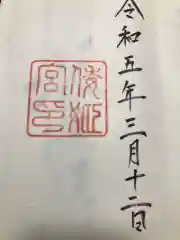 令和五年三月十二日
倭姫宮印